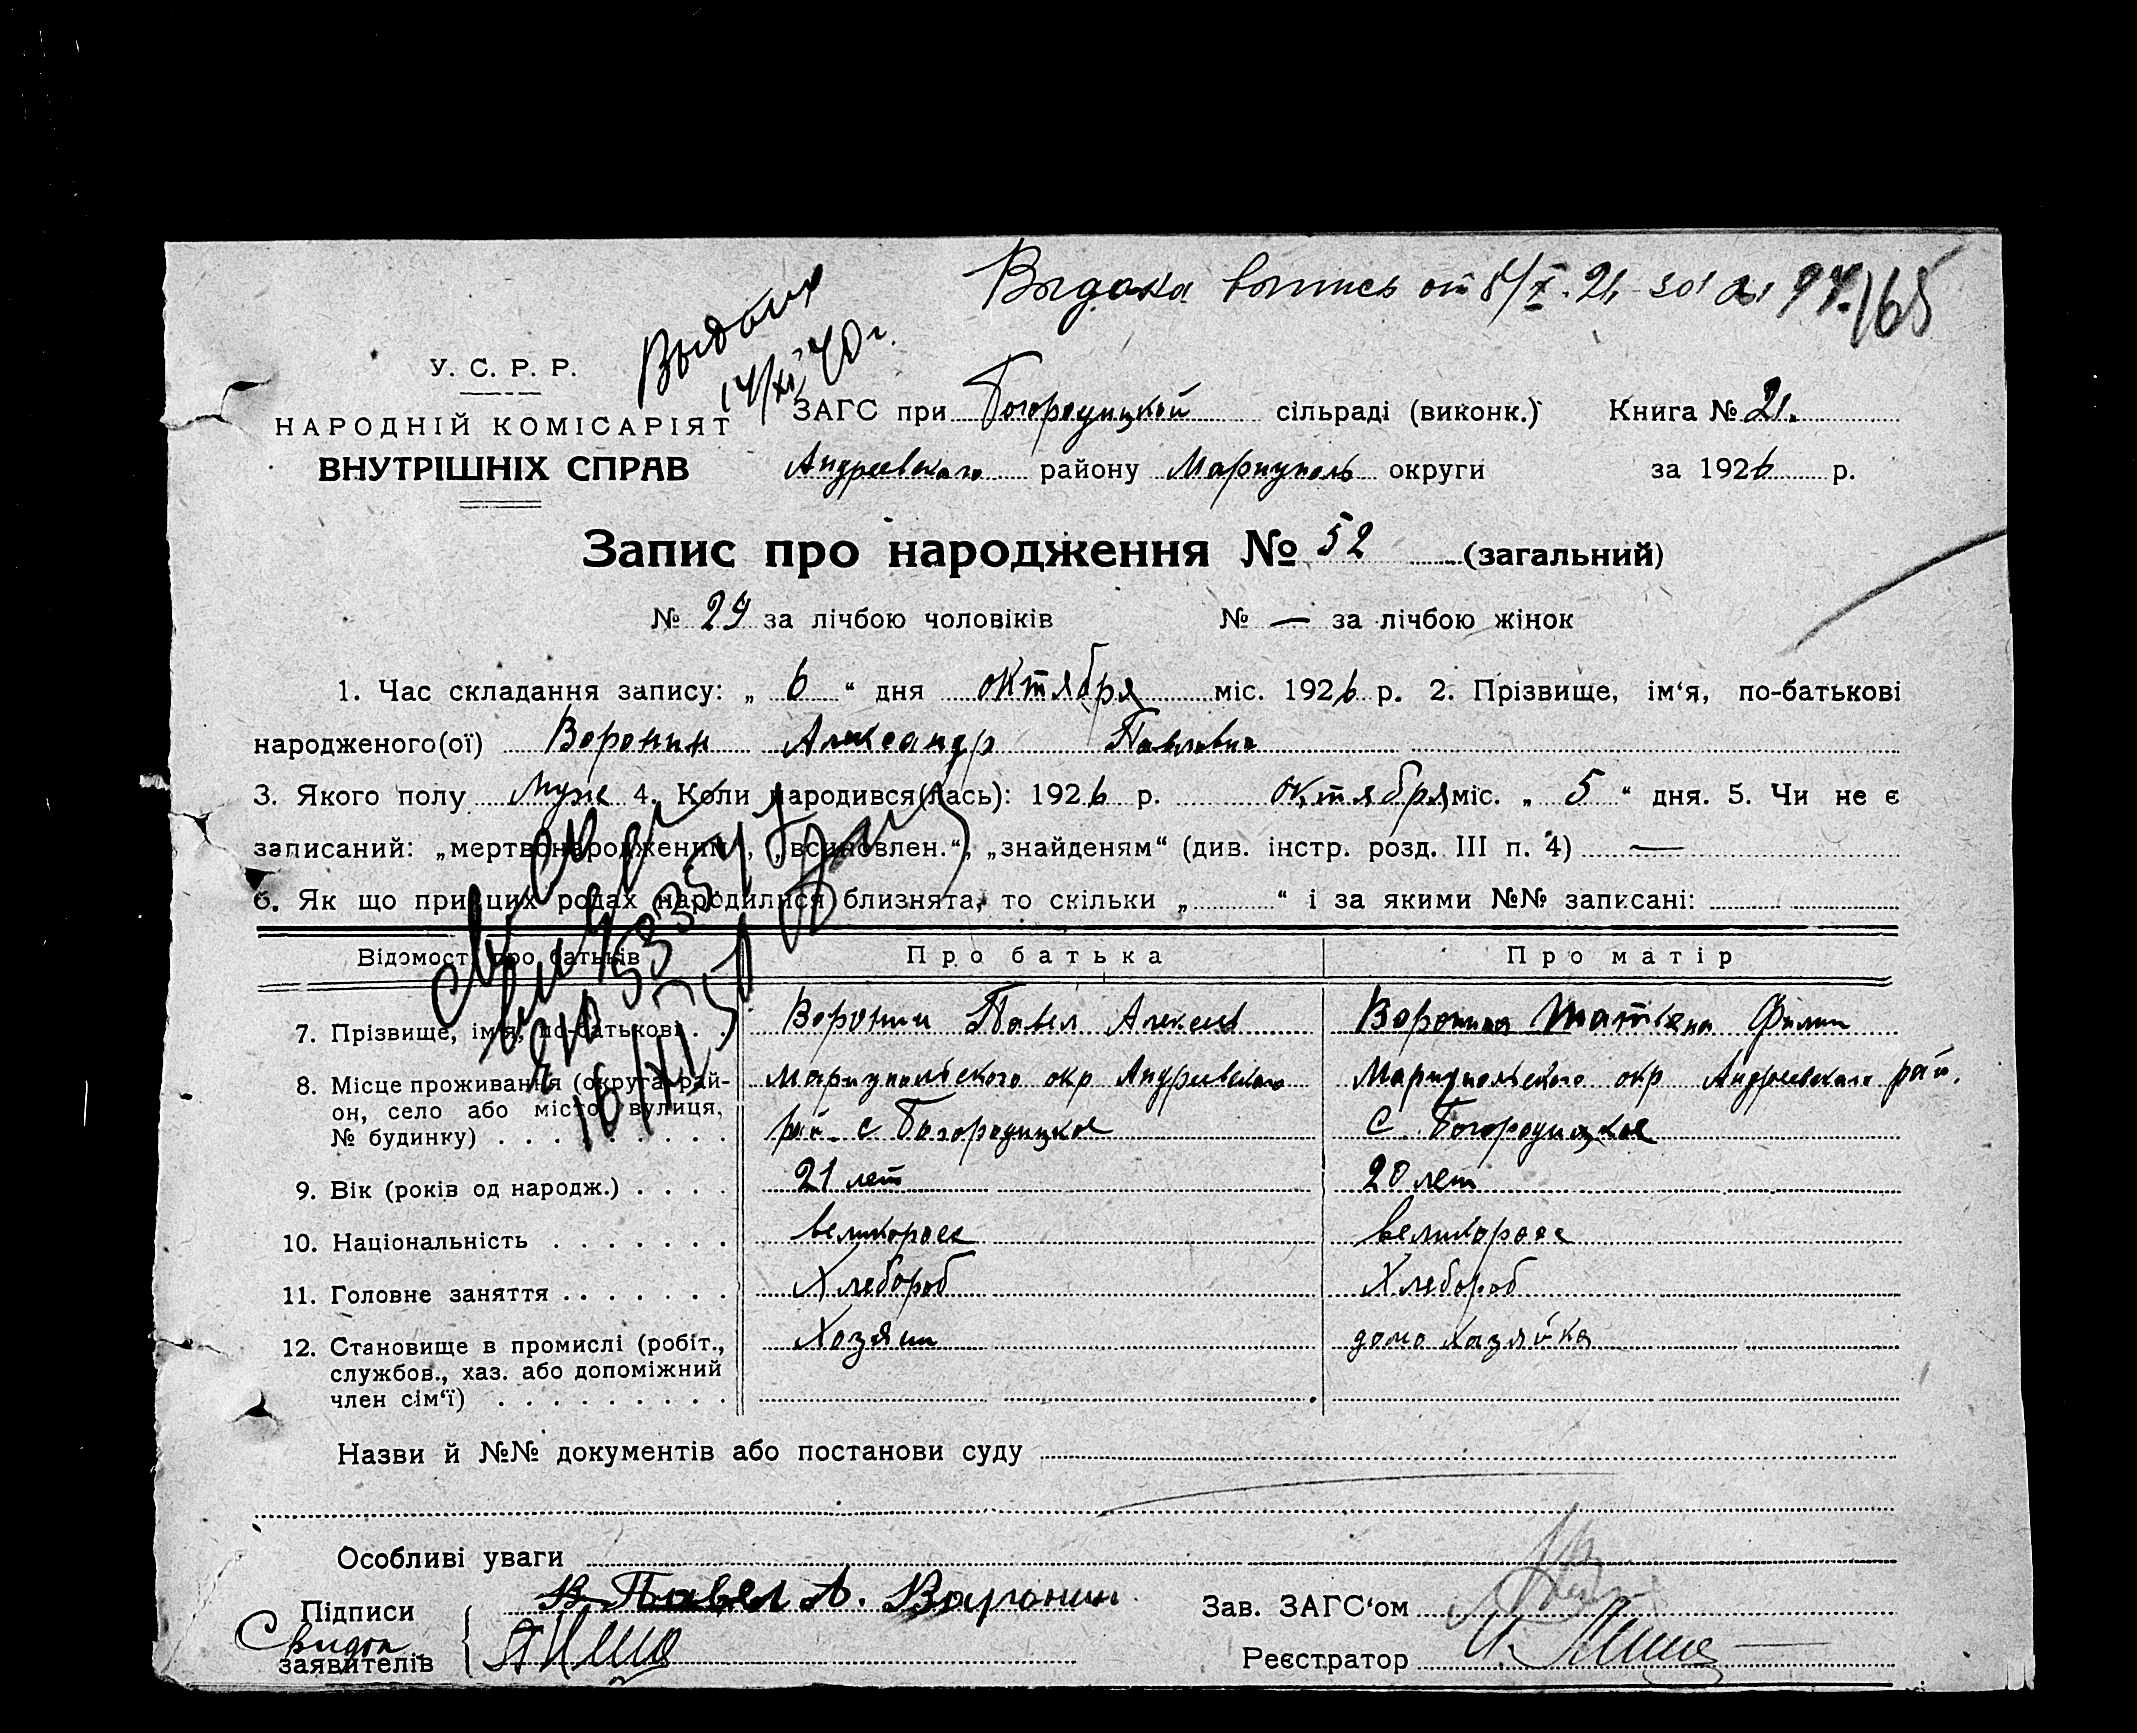 Выдана выпись от
165
Выдан
14/XI 40 г.
У. С. Р. Р.
НАРОДНІЙ КОМІСАРІЯТ
ВНУТРІШНІХ СПРАВ
ЗАГС при Богородицкой сільраді (виконк.) Книга № 21.
Андреевского району Мариуполь округи за 1926 р.
Запис про народження № 52 (загальний)
№ 29 за лічбою чоловіків № — за лічбою жінок
1. Час складання запису: „ 6 “ дня октября міс. 1926 р. 2. Прізвище, ім‘я, по-батькові
народженого(ої) Воронин Александр Павлович
3. Якого полу муж 4. Коли народився(лась): 1926 р. октября міс. „ 5 “ дня. 5. Чи не є
записаний: „мертвонародженим“, „всиновлен.“, „знайденям“ (див. інстр. розд. III п. 4) —
6. Як що при цих родах народилися близнята, то скільки „ “ і за якими №№ записані:
Відомості про батьків Про батька Про матір
7. Прізвище, ім‘я, по-батькові . . Воронин Павел Алексеев Воронина Татіяна Филип
8. Місце проживання (округа, рай- Мариупольского окр Андреевского Мариупольского окр Андреевского рай.
он, село або місто, вулиця, рай. с Богородицкое с. Богородицкое
№ будинку) . . . . . . . . . .
9. Вік (років од народж.) . . . . 21 лет 20 лет
10. Національність . . . . . . . великоросс великоросс
11. Головне заняття . . . . . . . Хлебороб Хлебороб
12. Становище в промислі (робіт., Хозяин домо хазяйка
службов., хаз. або допоміжний
член сім‘ї) . . . . . . . . .
Назви й №№ документів або постанови суду
Особливі уваги
Підписи В Павел А. Варонин Зав. ЗАГС‘ом
заявителів Реєстратор